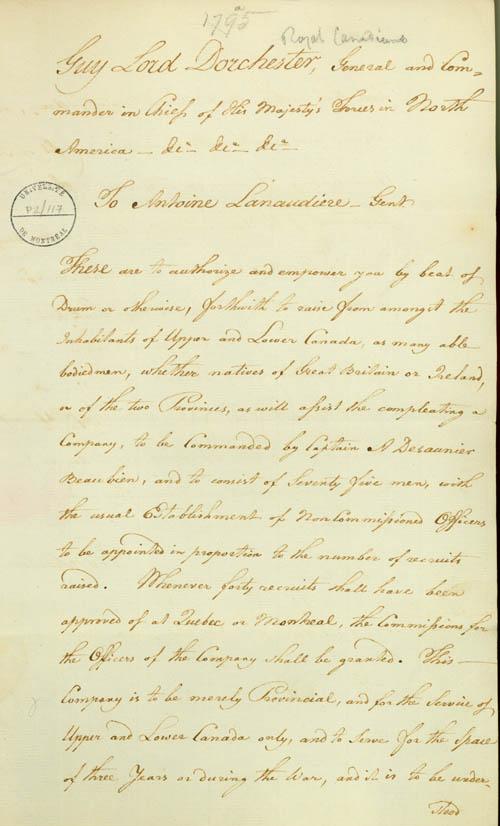 1795
Royal Canadians
Guy Lord Dorchester, General and Com=
mander in Chief of His Majesty's Forces in North
America — &ca &ca &ca
UNIVERSITÉ
P2/117
DE MONTRÉAL
To Antoine Lanaudiere — Gent.
These are to authorize and empower you by beat of
Drum or otherwise, forthwith to raise from amongst the
Inhabitants of Upper and Lower Canada, as many able
bodied men, whether natives of Great Britain or Ireland,
or of the two Provinces, as will assist the compleating a
Company, to be Commanded by Captain A Desaunier
Beaubien, and to consist of Seventy five men, with
the usual Establishment of Non Commissioned Officers
to be appointed in proportion to the number of recruits
raised. Whenever forty recruits shall have been
approved of at Quebec or Montreal, the Commissions for
the Officers of the Company shall be granted. This —
Company is to be merely Provincial, and for the Service of
Upper and Lower Canada only, and to serve for the space
of three Years or during the War, and it is to be under-
stood